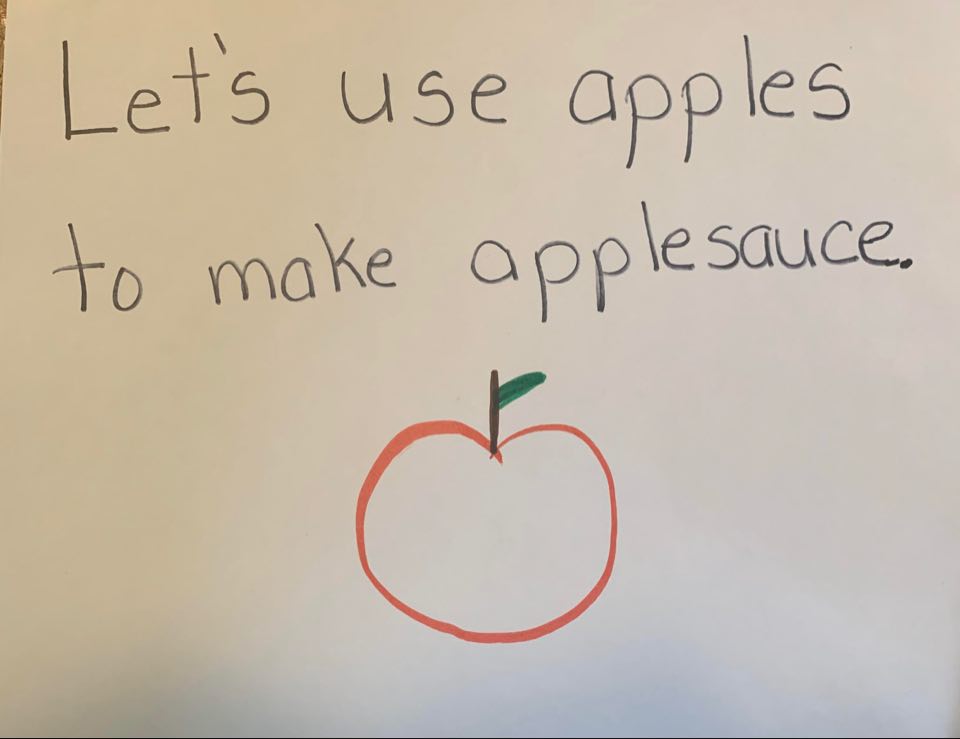 Let's use apples
to make applesauce.